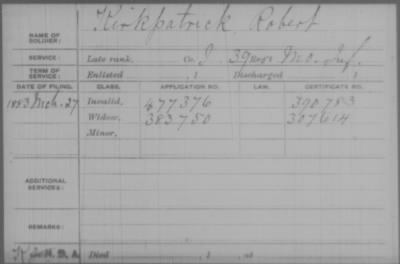 Kirkpatrick Robert
NAME OF SOLDIER:
SERVICE: Late rank, Co. I 39 Mo. Inf.
TERM OF SERVICE: Enlisted , 1 Discharged , 1
DATE OF FILING. CLASS. APPLICATION NO. LAW. CERTIFICATE NO.
1883 Mch. 27 Invalid, 477376 390783
Widow, 383750 307614
Minor,
ADDITIONAL SERVICES:
REMARKS:
Died , 1 , at